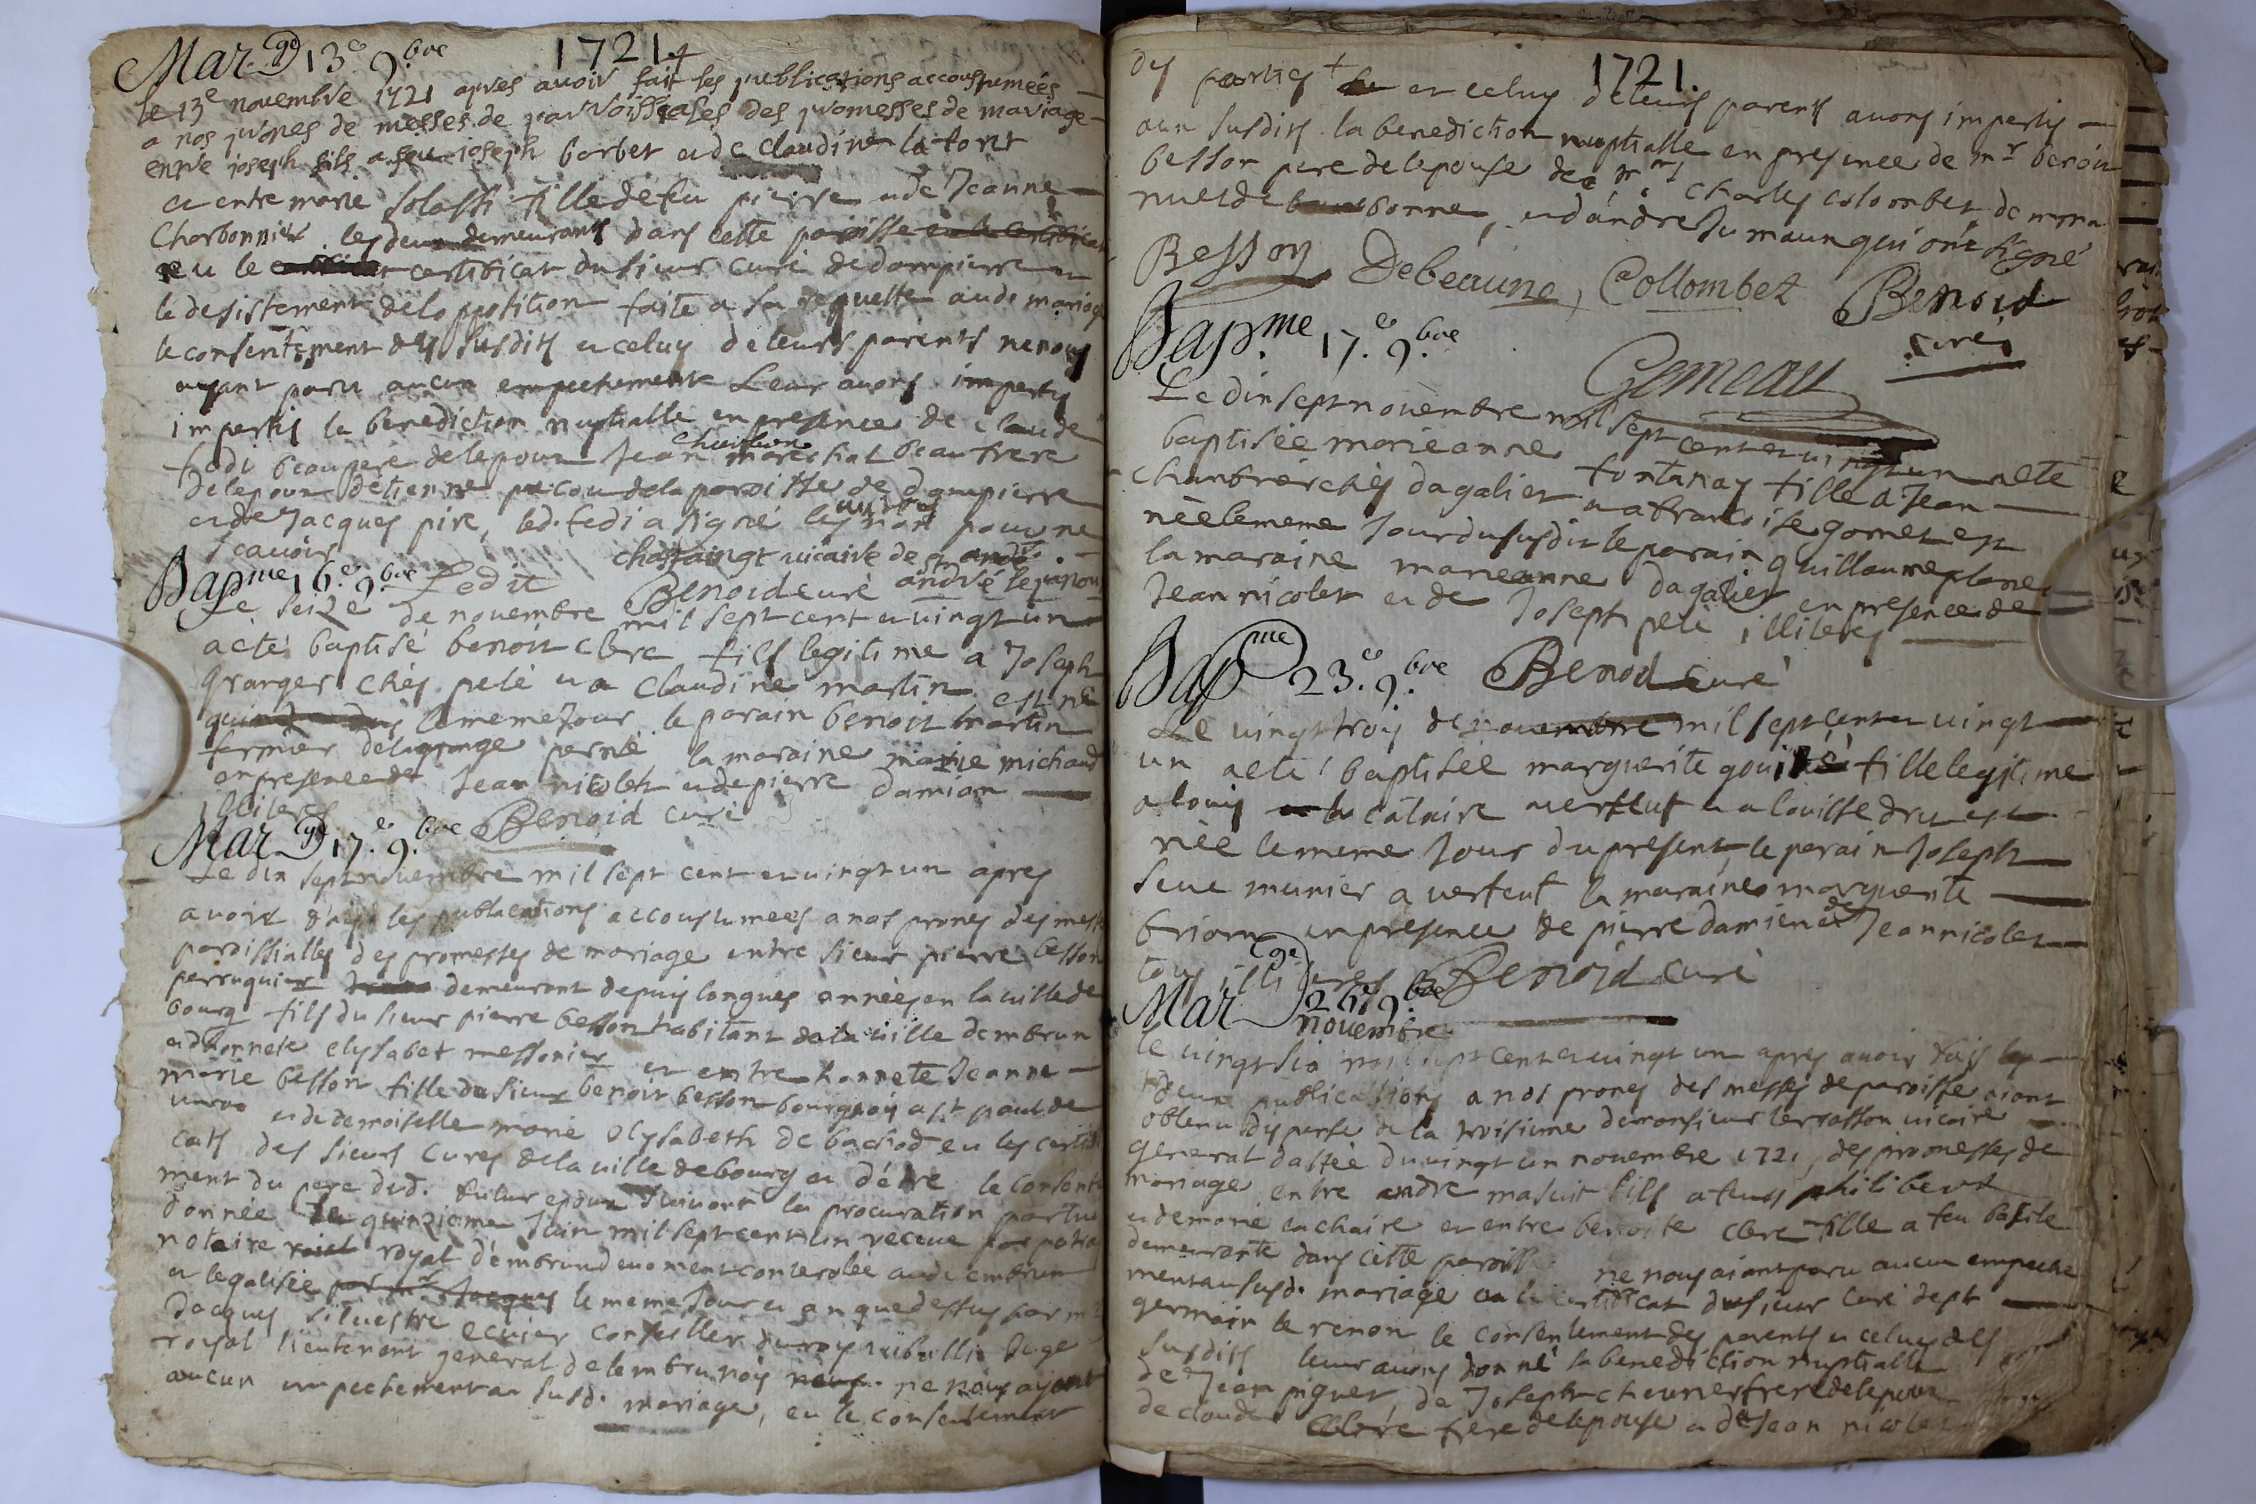 Mar.ge 13e 9.bre 1721
le 13e novembre 1721 apres avoir fait les publications accoustumées
a nos prones de messes de parroissiales des promesses de mariage
entre joseph fils a feu joseph barbet et de claudine la font
et entre marie solassi fille de feu pierre et de Jeanne
Charbonnier les deux demeurants dans cette
eu le certificat du sieur curé de dompierre et
le desistement de lopposition faite a sa requette audi mariage
le consentement des susdits et celuy de leurs parents ne nous
ayant paru aucun empechement Leur avons imparty
impartis la benediction nuptialle en presence de claude
fedi beaupere de lepoux Jean marechal beaufrere
de lepoux detienne de la paroisse de dompierre
et de Jacques pire, led. fedi a signé les autres non pour ne
scavoir
chastaingt vicaire de st andré
andré le panoux
Fedit Benoid curé
Bapme 16.e 9.bre
Le seize de novembre mil sept cent et vingt un
a eté baptisé benoit clerc fils legitime a Joseph
granger chés pelé et a Claudine martin est né
le meme Jour le parain benoit martin
fermier de la grange la maraine marie michaud
en presence de Jean nicolet et de pierre damian
illiteres Benoid curé
Mar.ge 17.e 9.bre
Le dix sept novembre mil sept cent et vingt un apres
avoir fait les publications accoustumees a nos prones des mess
paroissialles des promesses de mariage entre sieur pierre besson
perruquier demeurant depuis longues années en la ville de
bourg fils du sieur pierre besson habitant de la ville dembrun
et dhonnete elysabet messonier et entre honnete Jeanne
marie besson fille du sieur benoit besson bourgeois a st paul de
varas et de demoiselle marie elysabeth de bachod eu les certifi
cats des sieurs Cures de la ville de bourg et le consente
ment du pere dud. futur epoux suivant la procuration
donnée le quinzieme Juin mil sept cent un receue
notaire royal dembrun controlée audi embrun
et legalisée par mr. Jacques le meme Jour et an que dessus par mr
Jacques silvestre ecuier conseiller du roy Juge
royal lieutenant general de lembrunois ne nous ayant
aucun empechement au susd. mariage, eu le consentement
1721.
des parties et celuy de leurs parents avons impartis
aux susdits la benediction nuptialle en presence de mr benoit
besson pere de lepouse de mrs charles colombet, de
et dandre Jumaun qui ont signé
Besson Debeaune, Collombet Benoid
curé
Gemeau
Bap.me 17.e 9.bre
Le dix sept novembre mil sept cent et vingt un a eté
baptisée marieanne fontanay fille a Jean
chambrer chés dagalier et a francoise gornet est
née le meme Jour du susdit le parain guillaume plane
la maraine marieanne dagalier en presence de
Jean nicolet et de Joseph pelé illiteres
Benoid curé
Bapme 23.e 9.bre
Le vingt trois de novembre mil sept cent et vingt
un a eté baptisée marguerite fille legitime
a louis a louisse dru est
née le meme Jour du present, le parain Joseph
seve munier a verfeut la maraine marguerite
briom en presence de pierre damien et de Jean nicolet
tous illiteres Benoid curé
Mar.ge 26e 9.bre
novembre
le vingt six mil sept cent et vingt un apres avoir fait les
deux publications a nos prones des messes de paroisse aiant
obtenu dispense de la troisieme de monsieur terrasson vicaire
general dattée du vingt un novembre 1721, des promesses de
mariage entre andre mascuit fils a feus philibert
et de marie lachaire et entre benoite clerc fille a feu basile
demeurante dans cette paroisse ne nous aiant paru aucun empeche
ment au susd. mariage eu le certificat du sieur Curé de st
germain le renon le consentement des parents et celuy des
susdits leur avons donné la benediction nuptialle
de Jean piguet, de Joseph frere de lepoux
de claude clerc frere de lepouse et de Jean nicolet